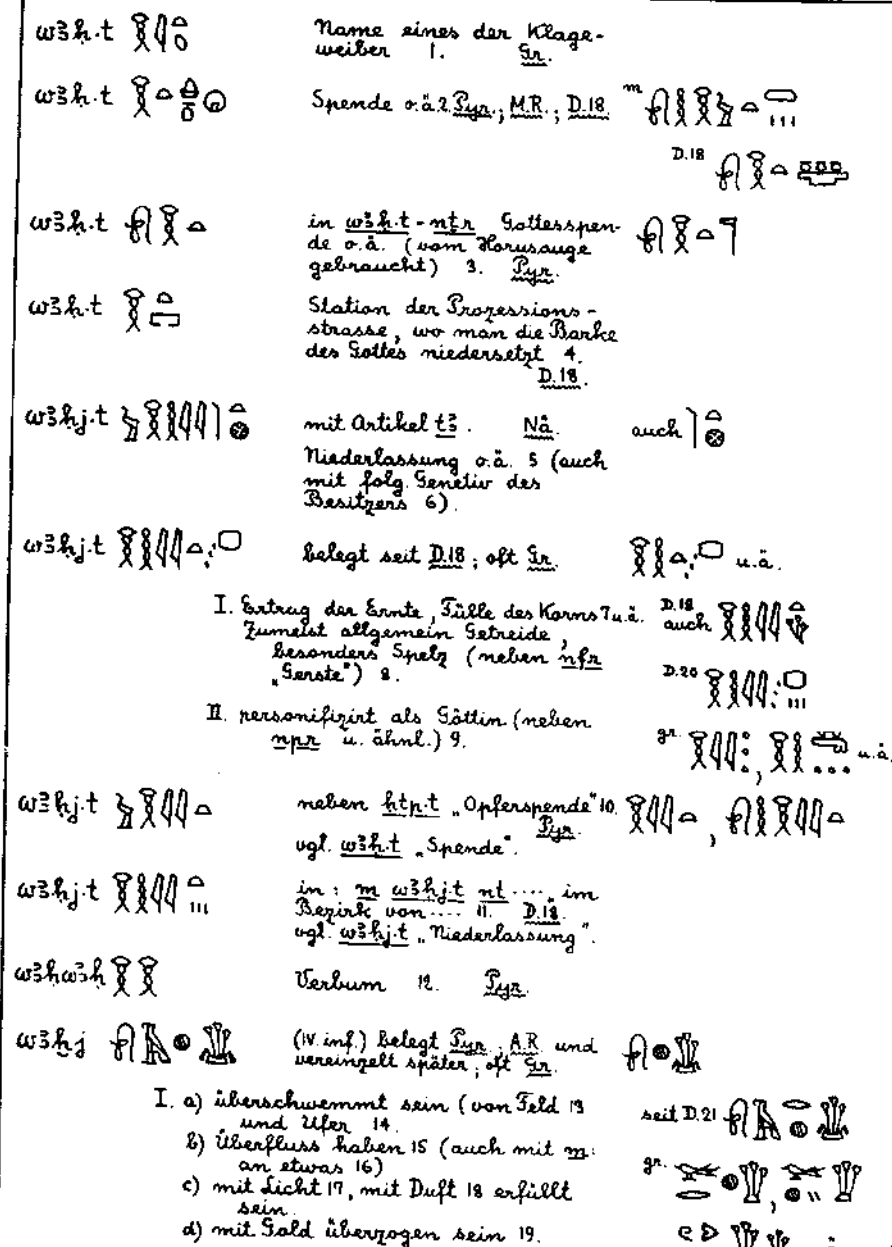 wꜣḥ.t 𓎝𓇋𓏏𓆇 Name eines der Klage-
weiber 1. Gr.
wꜣḥ.t 𓎝𓏏 Spende o.ä. 2. Pyr.; M.R.; D.18. m
D.18
wꜣḥ.t 𓍯𓎝𓏏 in wꜣḥ.t-nṯr Gottesspen- 𓍯𓎝𓏏𓊹
de o.ä. (vom Horusauge
gebraucht) 3. Pyr.
wꜣḥ.t 𓎝𓏏𓉐 Station der Prozessions-
strasse, wo man die Barke
des Gottes niedersetzt 4.
D.18.
wꜣḥj.t mit Artikel tꜣ. Nä. auch 𓌙𓏏𓊖
Niederlassung o.ä. 5 (auch
mit folg. Genetiv des
Besitzers 6).
wꜣḥj.t 𓎝𓎛𓇋𓇋𓏏 belegt seit D.18; oft Gr. 𓎝𓎛𓏏 u.ä.
I. Ertrag der Ernte, Fülle des Korns 7 u.ä. D.18
Zumeist allgemein Getreide, auch 𓎝𓎛𓇋𓇋𓏏
besonders Spelz (neben nfr
„Gerste") 8. D.20 𓎝𓎛𓇋𓇋
II. personifizirt als Göttin (neben
npr u. ähnl.) 9. gr. 𓎝𓇋𓇋, 𓎝𓎛 u.ä.
wꜣḥj.t 𓎝𓇋𓇋𓏏 neben ḥtp.t „Opferspende" 10. 𓎝𓇋𓇋𓏏, 𓍯𓎛𓎝𓇋𓇋𓏏
Pyr.
vgl. wꜣḥ.t „Spende".
wꜣḥj.t 𓎝𓎛𓇋𓇋𓏏𓏥 in: m wꜣḥj.t nt .... „im
Bezirk von .... 11. D.18.
vgl. wꜣḥj.t „Niederlassung".
wꜣḥwꜣḥ 𓎝𓎝 Verbum 12. Pyr.
wꜣḫj 𓍯𓄿𓐍𓇇 (IV. inf.) belegt Pyr., A.R. und 𓍯𓐍
vereinzelt später; oft Gr.
I. a) überschwemmt sein (von Feld 13 seit D.21
und Ufer 14.
b) Überfluss haben 15 (auch mit m: gr.
an etwas 16)
c) mit Licht 17, mit Duft 18 erfüllt
sein.
d) mit Gold überzogen sein 19.